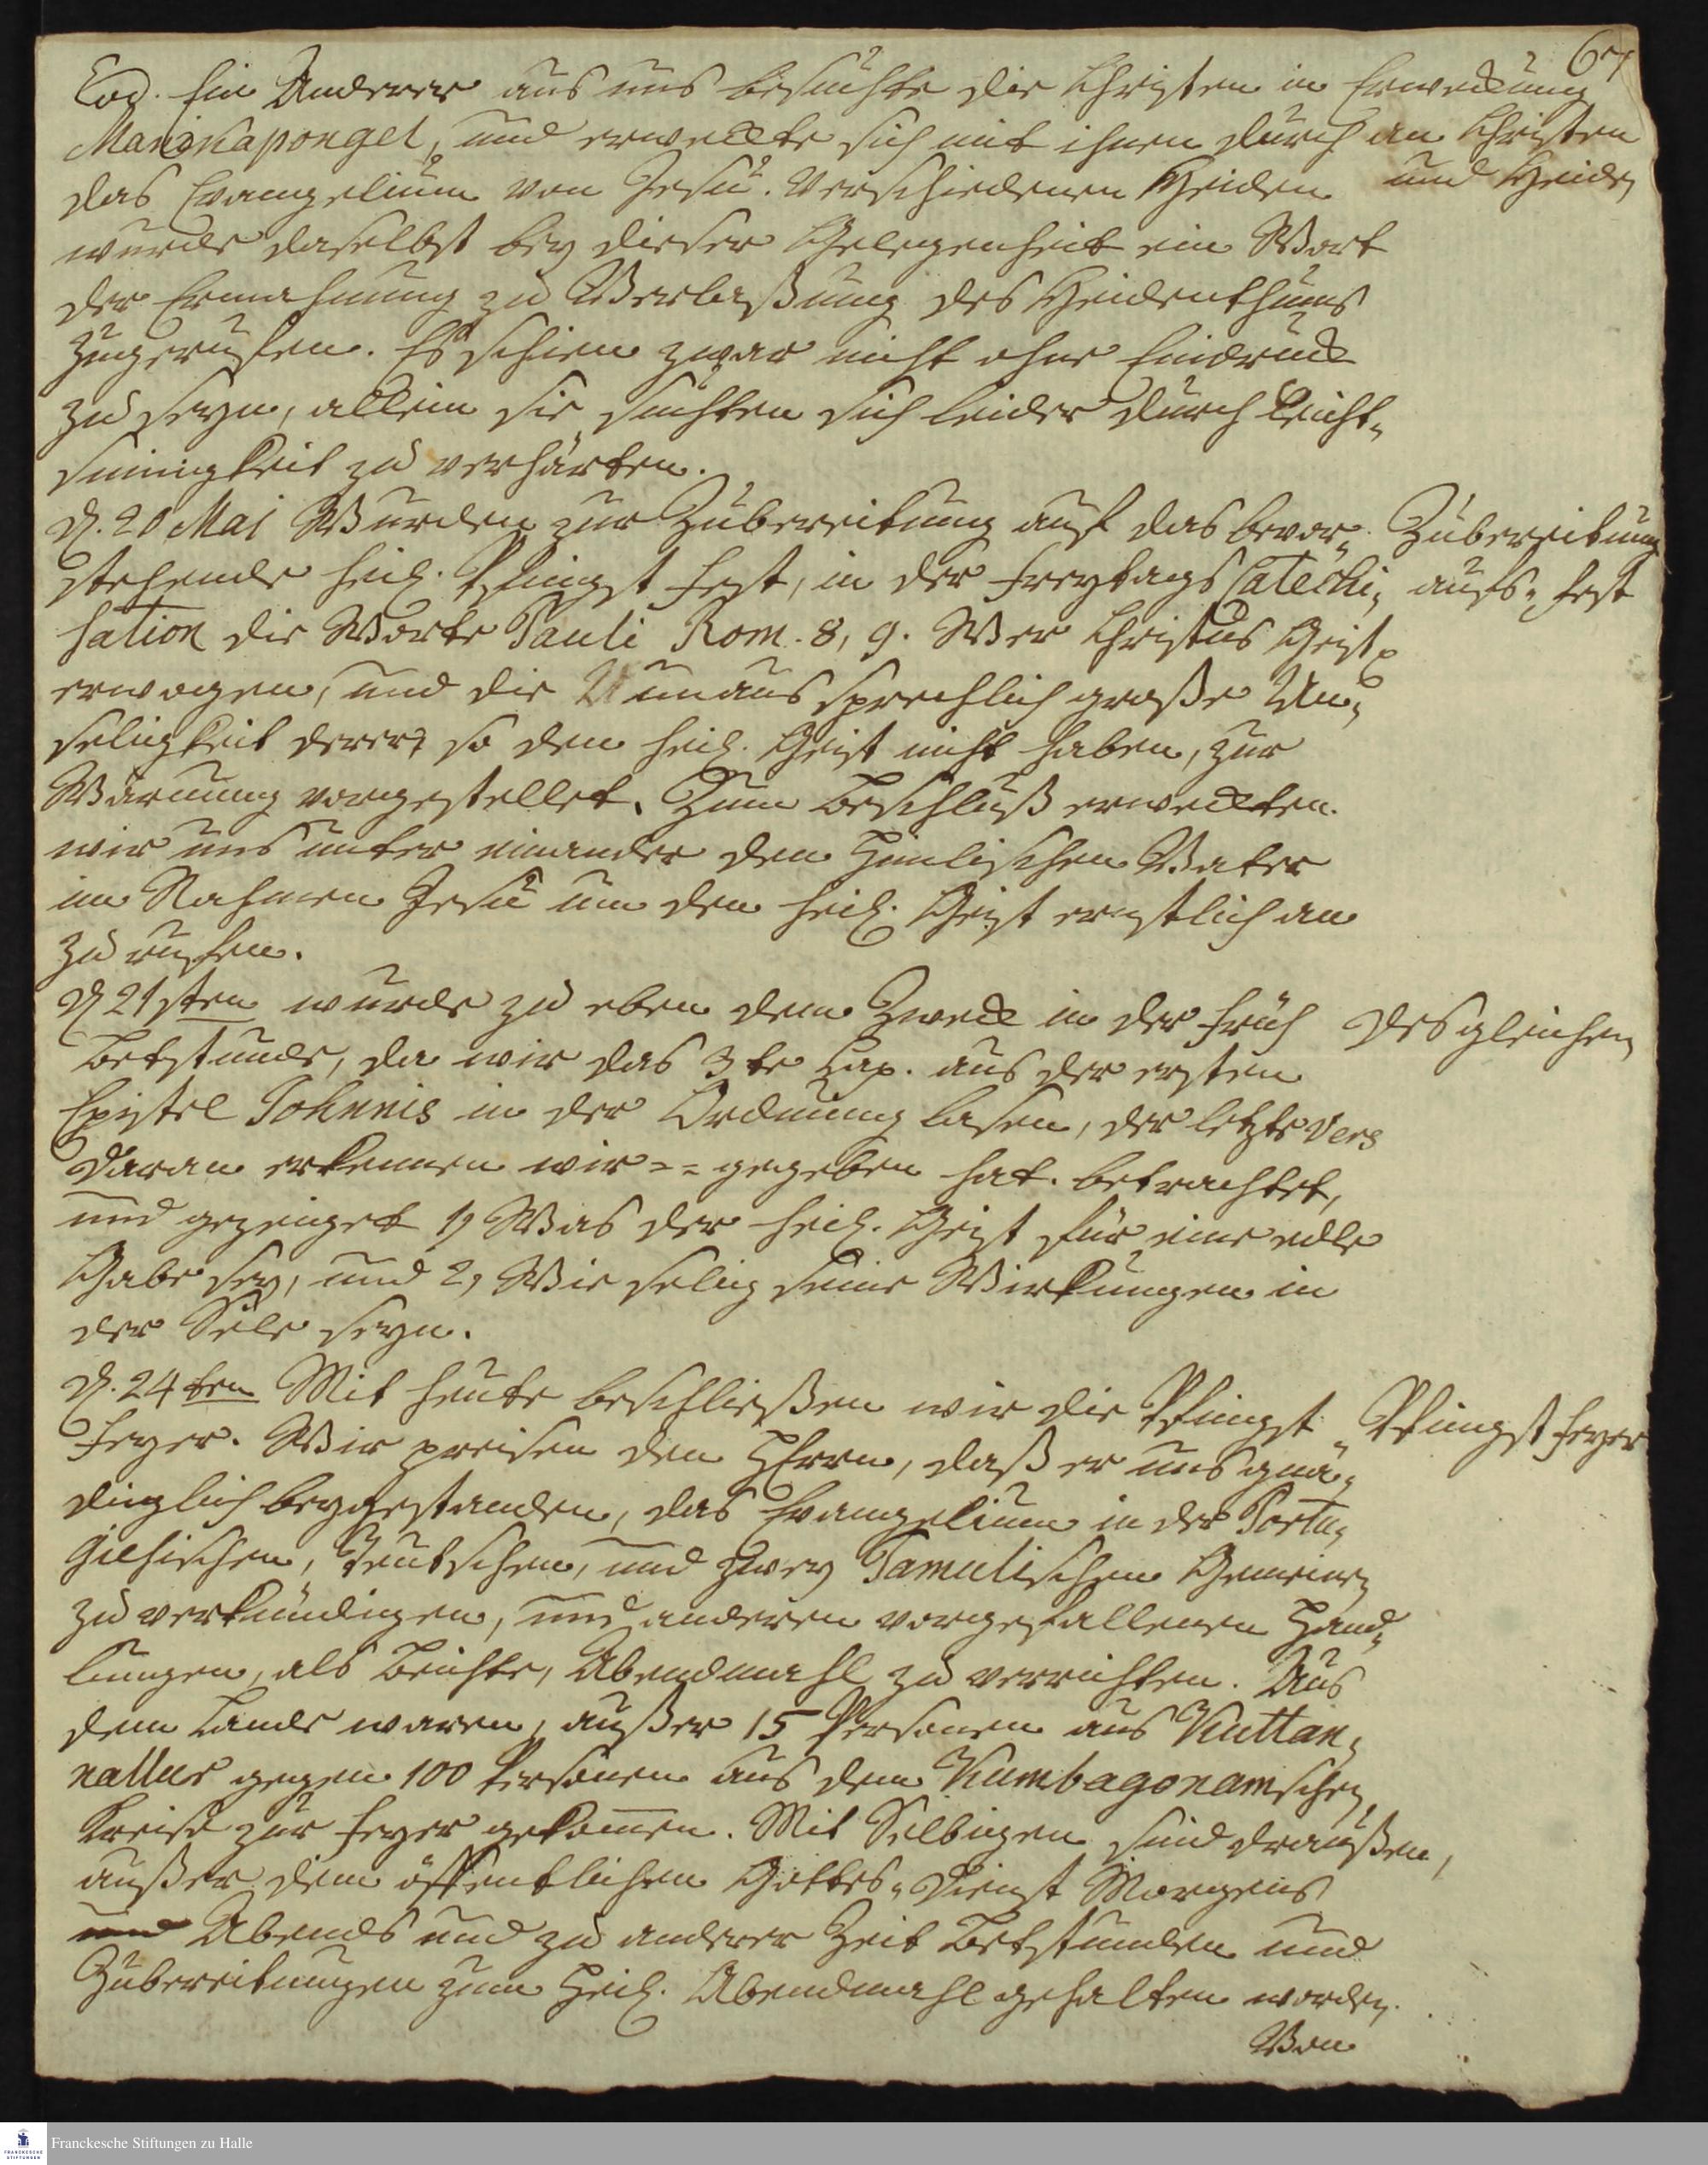 67
Eod. Ein Anderer aus uns besuchte die Christen in
Manikapongel, und erweckte sich mit ihnen durch
das Evangelium von Jesu. Verschiedenen Heiden
wurde daselbst bey dieser Gelegenheit ein Wort
der Ermahnung zu Verlaßung des Heidenthums
zugerufen. Es schien zwar nicht ohne Eindruck
zu seyn, allein sie suchten sich leider durch Leicht-
sinnigkeit zu verhärten.
Erweckung
an Christen
und Heiden
d. 20 Mai Wurden zur Zubereitung auf das bevor-
stehende heil. Pfingst Fest, in der Freytags Catechi-
sation die Worte Pauli Rom. 8, 9. Wer Christus Geist
erwogen, und die unaussprechlich große Un-
seligkeit derer, so den heil. Geist nicht haben, zur
Warnung vorgestellet. Zum Beschluß erweckten
wir uns unter einander den Himlischen Vater
im Nahmen Jesu um den heil. Geist ernstlich an
zu rufen.
Zubereitung
aufs Fest
d 21sten wurde zu eben dem Zweck in der Früh
Betstunde, da wir das 3te Cap. aus der ersten
Epistel Johnnis in der Ordnung lasen, der letzte Vers
Daran erkennen wir -- gegeben hat. betrachtet,
und gezeiget 1, Was der heil. Geist für eine edle
Gabe sey, und 2, Wie selig seine Wirkungen in
der Sele seyn.
desgleichen
d. 24ten Mit heute beschließen wir die Pfingst-
Feyer. Wir preisen den HErrn, daß er uns gnä-
diglich beygestanden, das Evangelium in der Portu-
giesischen, Teutschen, und zwey Tamulischen Gemeinen
zu verkündigen, und anderen vorgefallenen Hand-
lungen, als Beichte, Abendmahl zu verrichten. Aus
dem Lande waren, außer 15 Personen aus Kuttan-
nallur gegen 100 Personen aus dem Kumbagonamschen
Kreise zur Feyer gekommen. Mit Selbigen sind draußen,
außer dem öffentlichen Gottes-Dienst Morgens
und Abends und zu anderer Zeit Betstunden und
Zubereitungen zum Heil. Abendmahl gehalten worden.
Pfingst Feyer
Von
Franckesche Stiftungen zu Halle